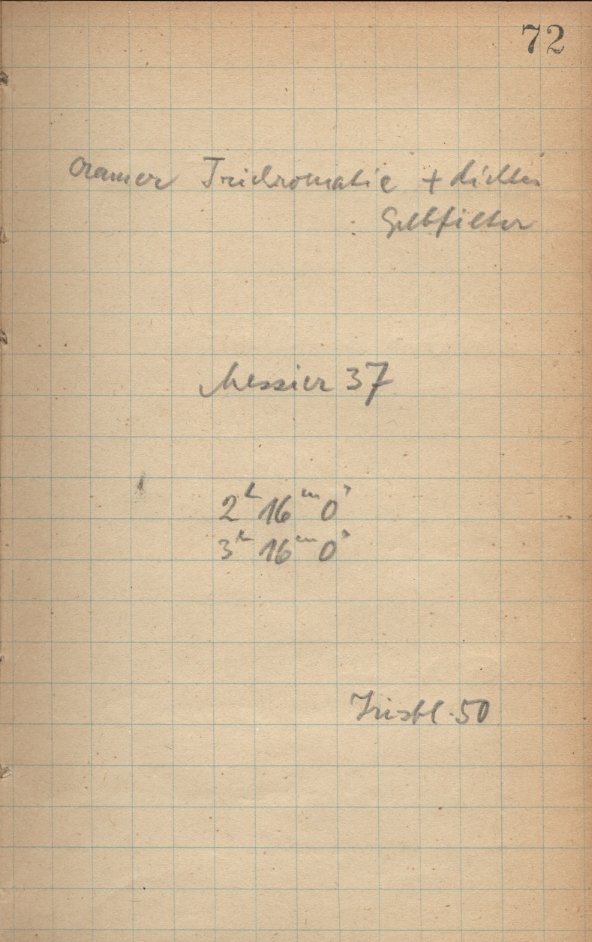 72
Cramer Trichromatic + dichtes
Gelbfilter
Messier 37
2ʰ 16ᵐ 0ˢ
3ʰ 16ᵐ 0ˢ
Irisbl. 50